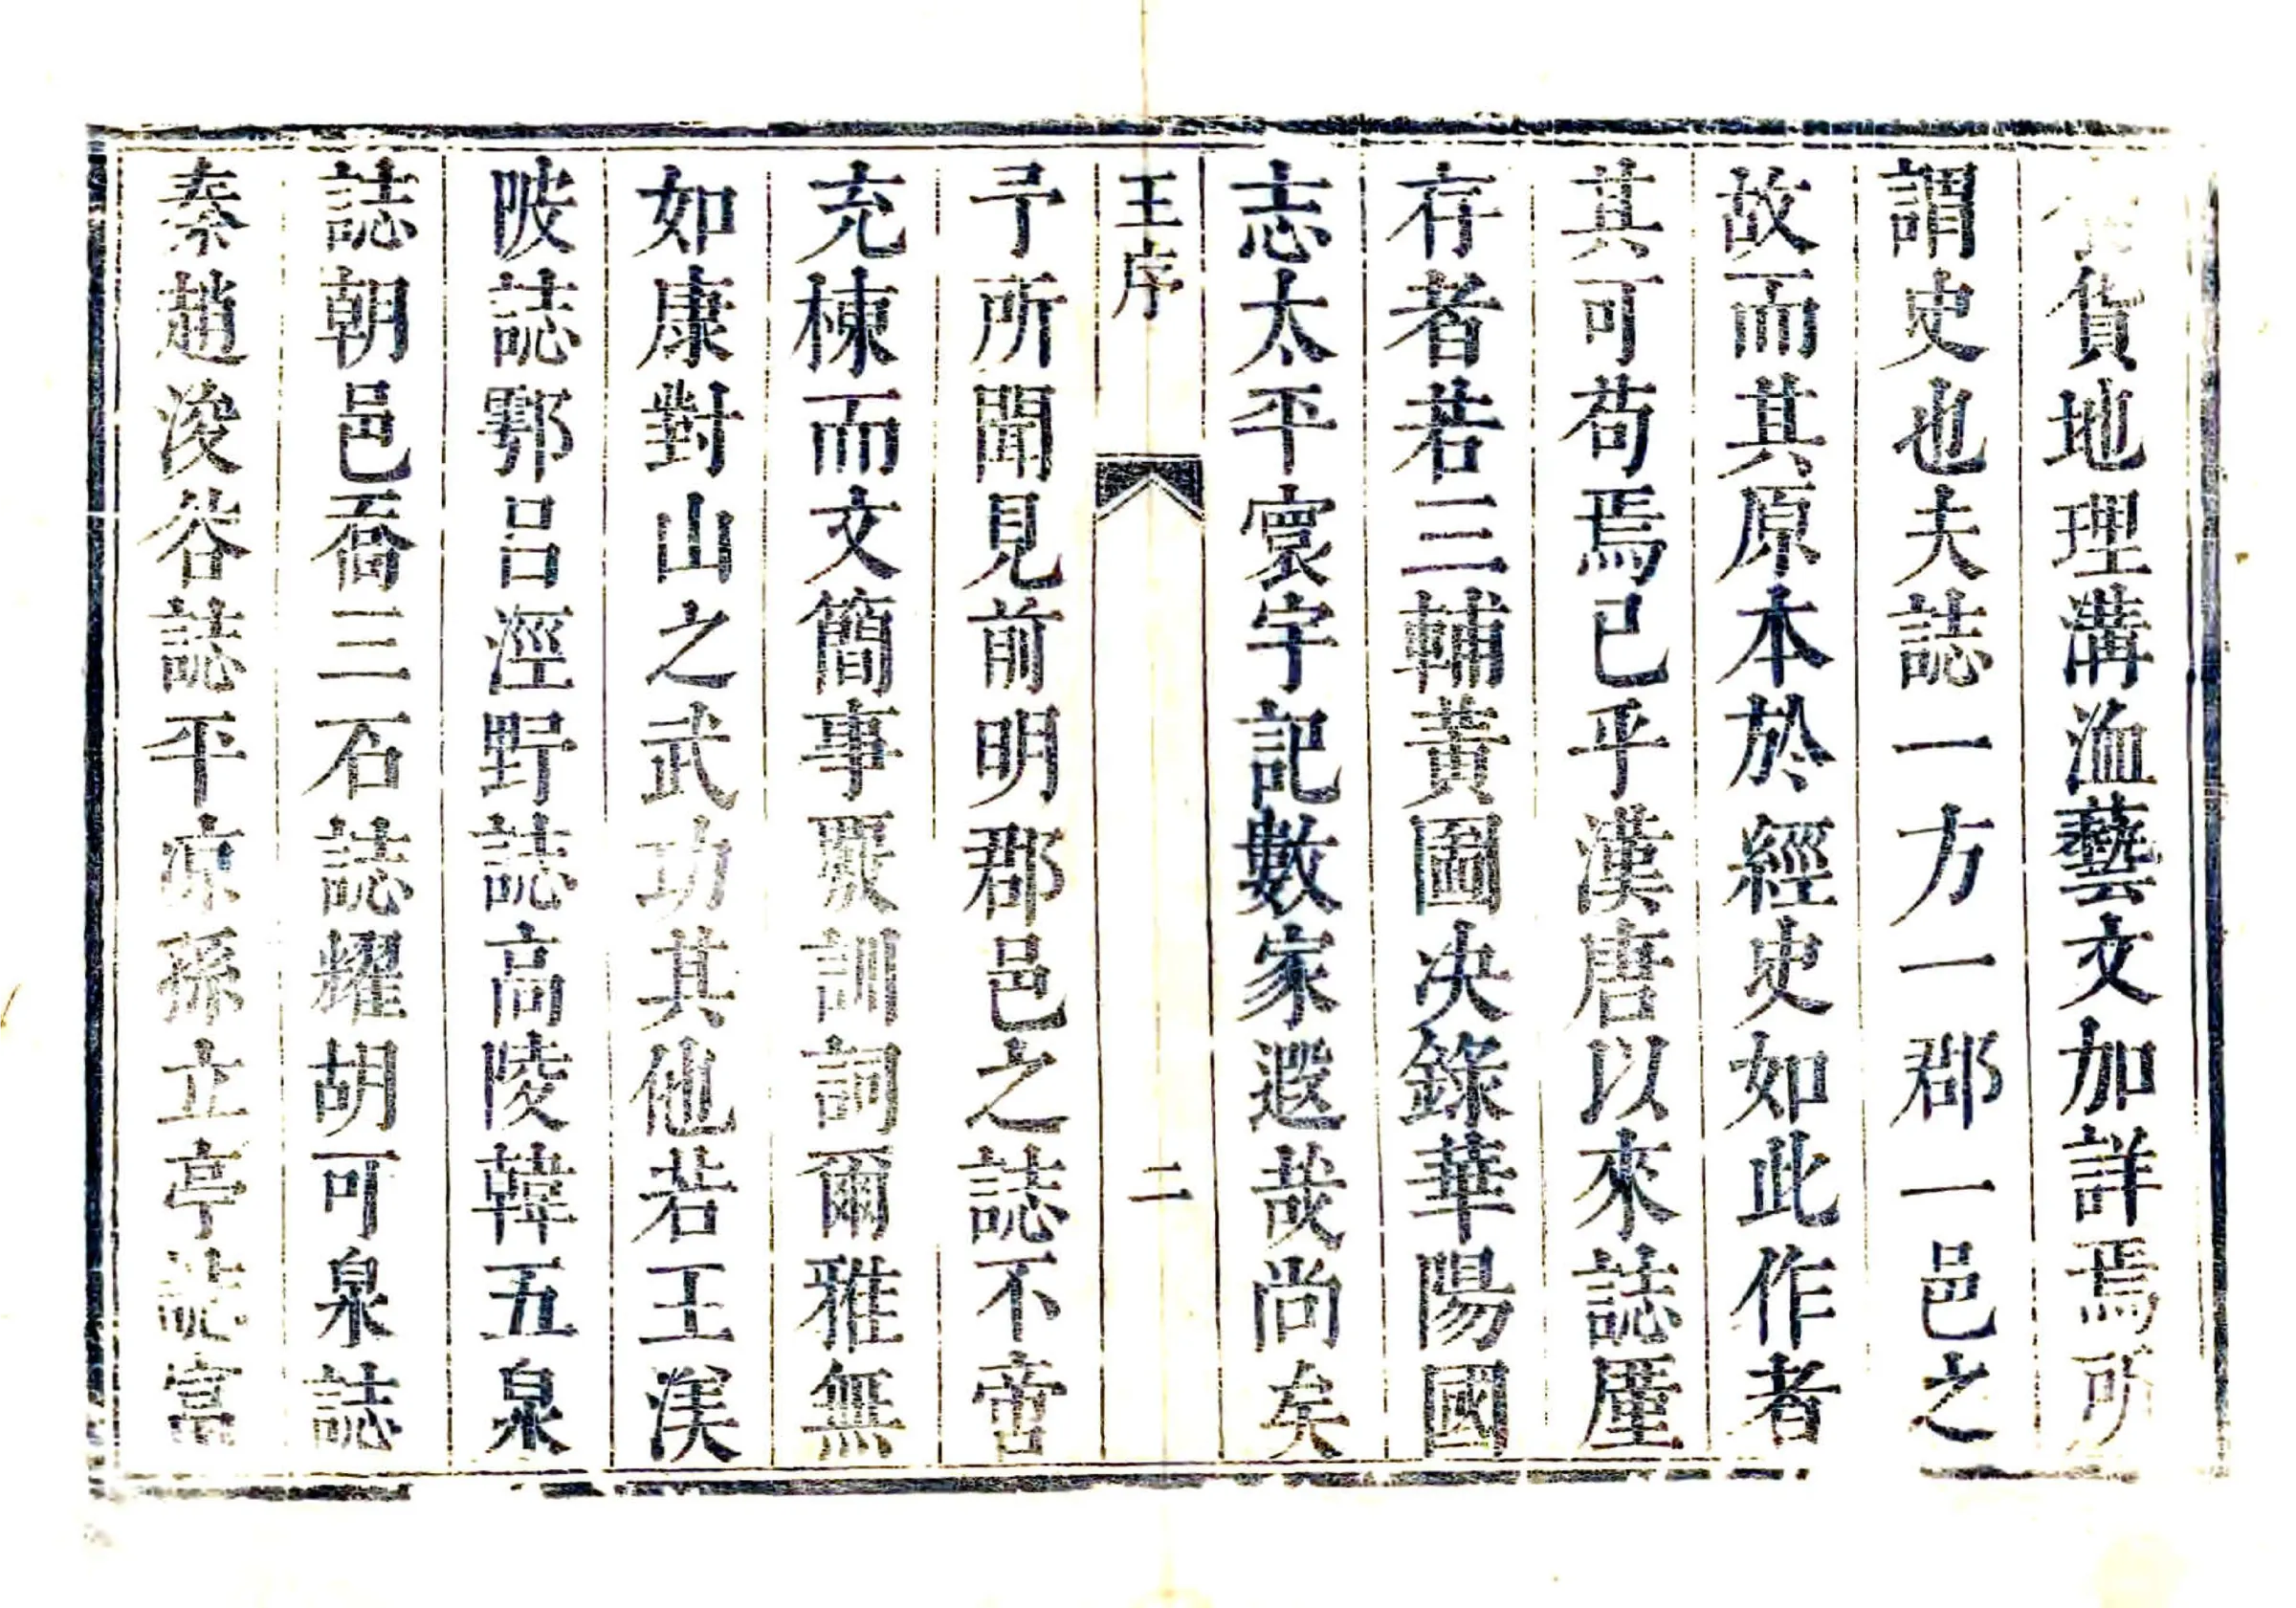 貨地理溝洫藝文加詳焉所
謂史也夫誌一方一郡一邑之
故而其原本於經史如此作者
其可苟焉已乎漢唐以來誌厪
存者若三輔黃圖决錄華陽國
志太平寰宇記數家遐哉尚矣
王序
二
予所聞見前明郡邑之誌不啻
充棟而文簡事覈訓詞爾雅無
如康對山之武功其他若王渼
陂誌鄠呂涇野誌高陵韓五泉
誌朝邑喬三石誌耀胡可泉誌
秦趙浚谷誌平凉孫立亭誌富